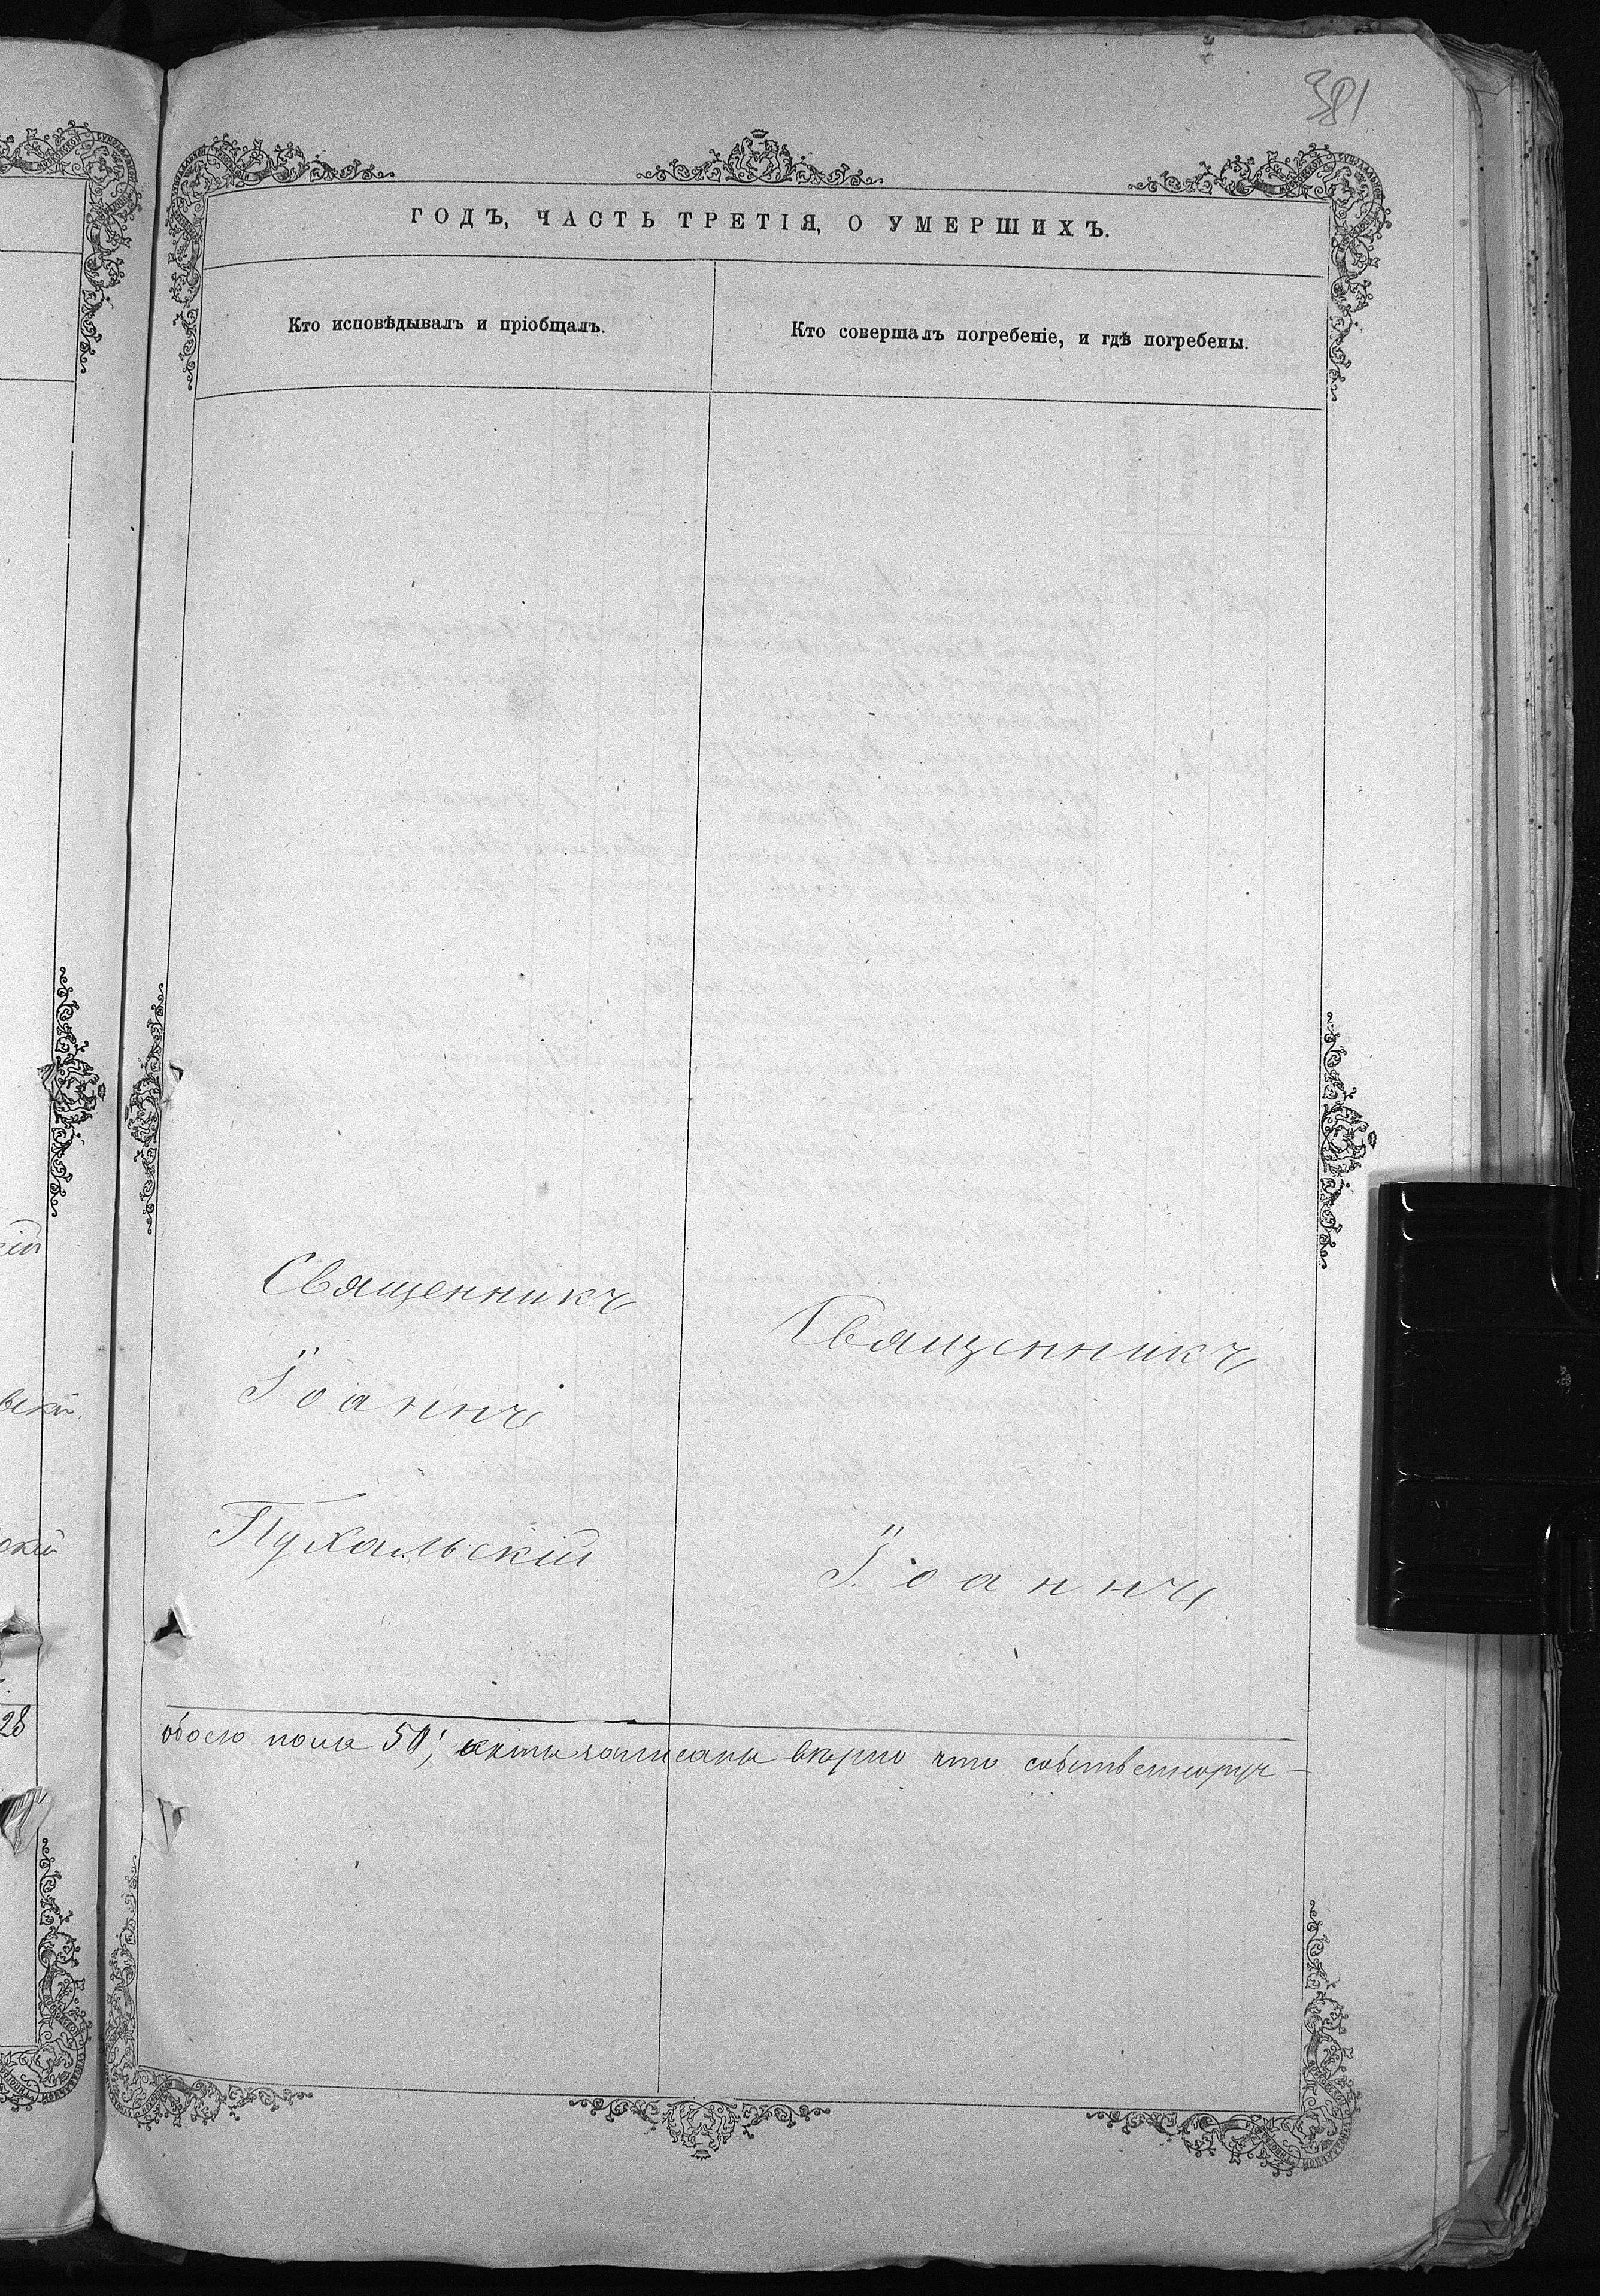 381
ГОДЪ, ЧАСТЬ ТРЕТІЯ, О УМЕРШИХЪ.
Кто исповѣдывалъ и пріобщалъ.
Кто совершалъ погребеніе, и гдѣ погребены.
Священникъ
Іоаннъ
Пухальскій
Священникъ
Іоаннъ
обоего пола 50; акты записаны вѣрно что собственноруч-
скій
28